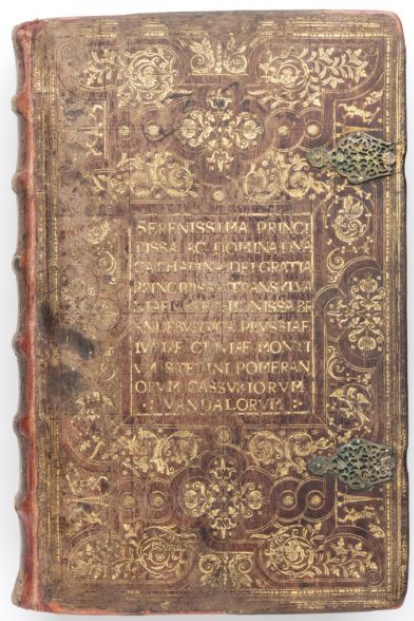 SERENISSIMA PRINCI
PISSA AC DOMINA DNA
CATHARINA DEI GRATIA
PRINCIPISSA TRANSYLVA
NIAE M
PRVSSIAE
IVLIAE CLIVIAE MONTI
VM STETTINI POMERAN
ORVM CASSVBIORVM
VANDALORVM